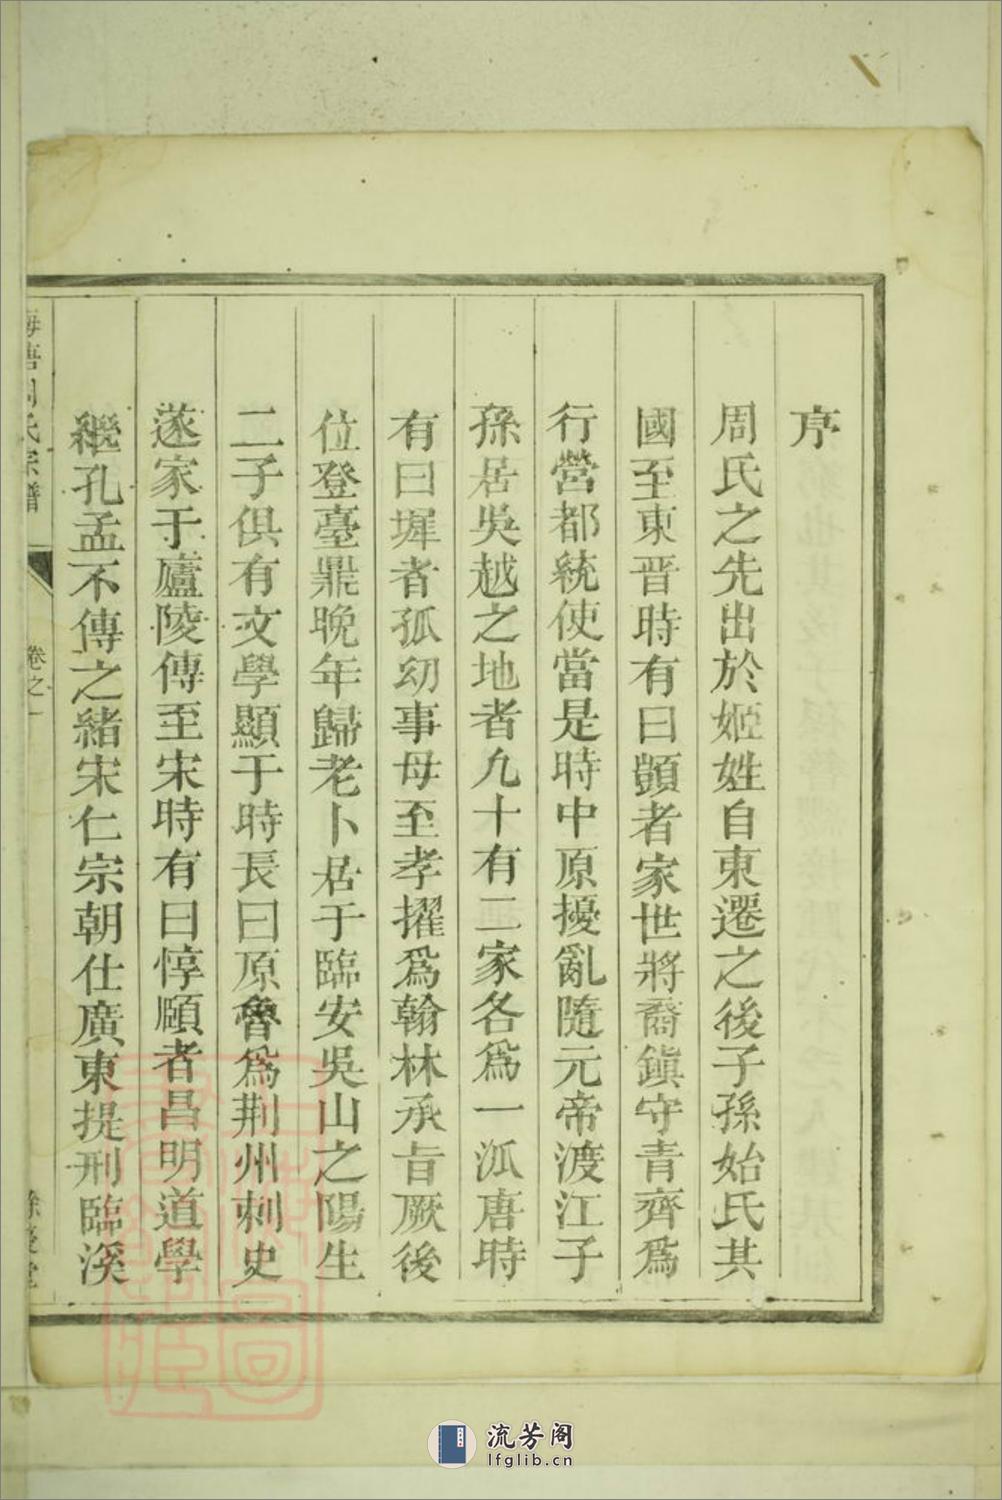 序
周氏之先出於姬姓自東遷之後子孫始氏其
國至東晋時有曰顗者家世將裔鎭守青齊爲
行營都統使當是時中原擾亂隨元帝渡江子
孫居吳越之地者九十有二家各爲一派唐時
有曰墀者孤幼事母至孝擢爲翰林承旨厥後
位登臺鼎晚年歸老卜居于臨安吳山之陽生
二子俱有文學顯于時長曰原魯爲荆州刺史
遂家于廬陵傳至宋時有曰惇頤者昌明道學
繼孔孟不傳之緒宋仁宗朝仕廣東提刑臨溪
周氏宗譜
卷之一
餘慶堂
流芳阁
lfglib.cn